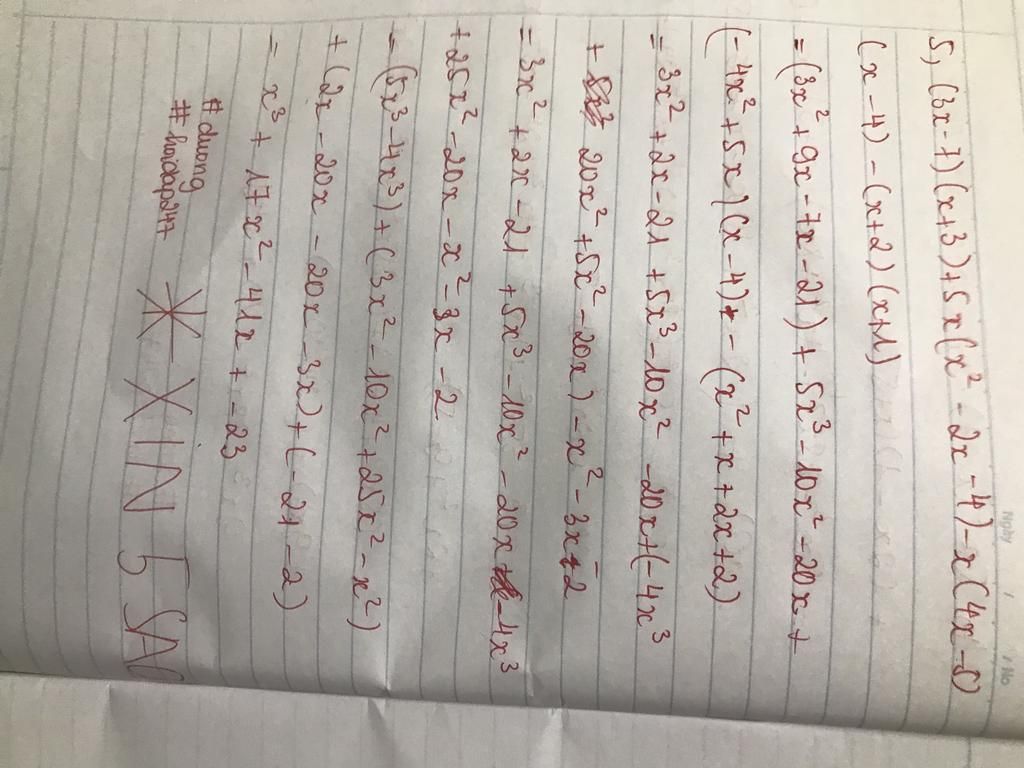 5, (3x-7)(x+3)+5x(x² - 2x - 4) - x(4x-5)
(x-4) - (x+2)(x+1)
= (3x² + 9x - 7x - 21) + 5x³ - 10x² - 20x +
(-4x² + 5x)(x-4) - (x² + x + 2x + 2)
= 3x² + 2x - 21 + 5x³ - 10x² - 20x + (-4x³
+ 20x² + 5x² - 20x) - x² - 3x - 2
= 3x² + 2x - 21 + 5x³ - 10x² - 20x - 4x³
+ 25x² - 20x - x² - 3x - 2
= (5x³ - 4x³) + (3x² - 10x² + 25x² - x²)
+ (2x - 20x - 20x - 3x) + (-21 - 2)
= x³ + 17x² - 41x + -23
#duong
#hoidap247
* XIN 5 SAO
Ngày / / No